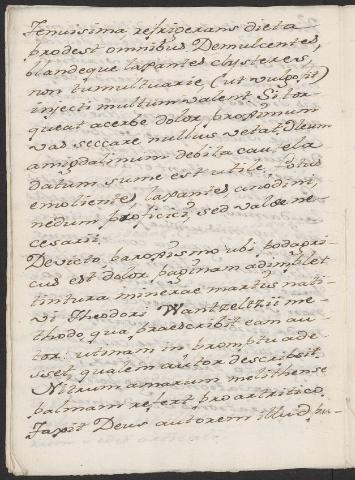 Tenuissima refrigerans dieta
prodest omnibus. Demulcentes,
blandeque laxantes clysteres,
non tumultuarie, (ut vulgo fit)
injecti multum valent. Si tor-
queat acerbe dolor, proximum
vas seccare nullus vetat, Oleum
amigdalinum debita cautela
datum sume est utile. Potus
emolientes, laxantes anodini,
nedum proficui, sed valde ne-
cesarii.
Devicto paroxismo ubi podagri-
cus est dolor, paginam adimplet
tintura minerae martis nati-
vi Theodori Wantzeltzii me-
thodo, qua praescribit eam au-
tor: utinam in promptu ades-
set, qualem autor describsit.
Nitrum amarum melithense
palmam refert pro artritico.
Faxit Deus autorem illud